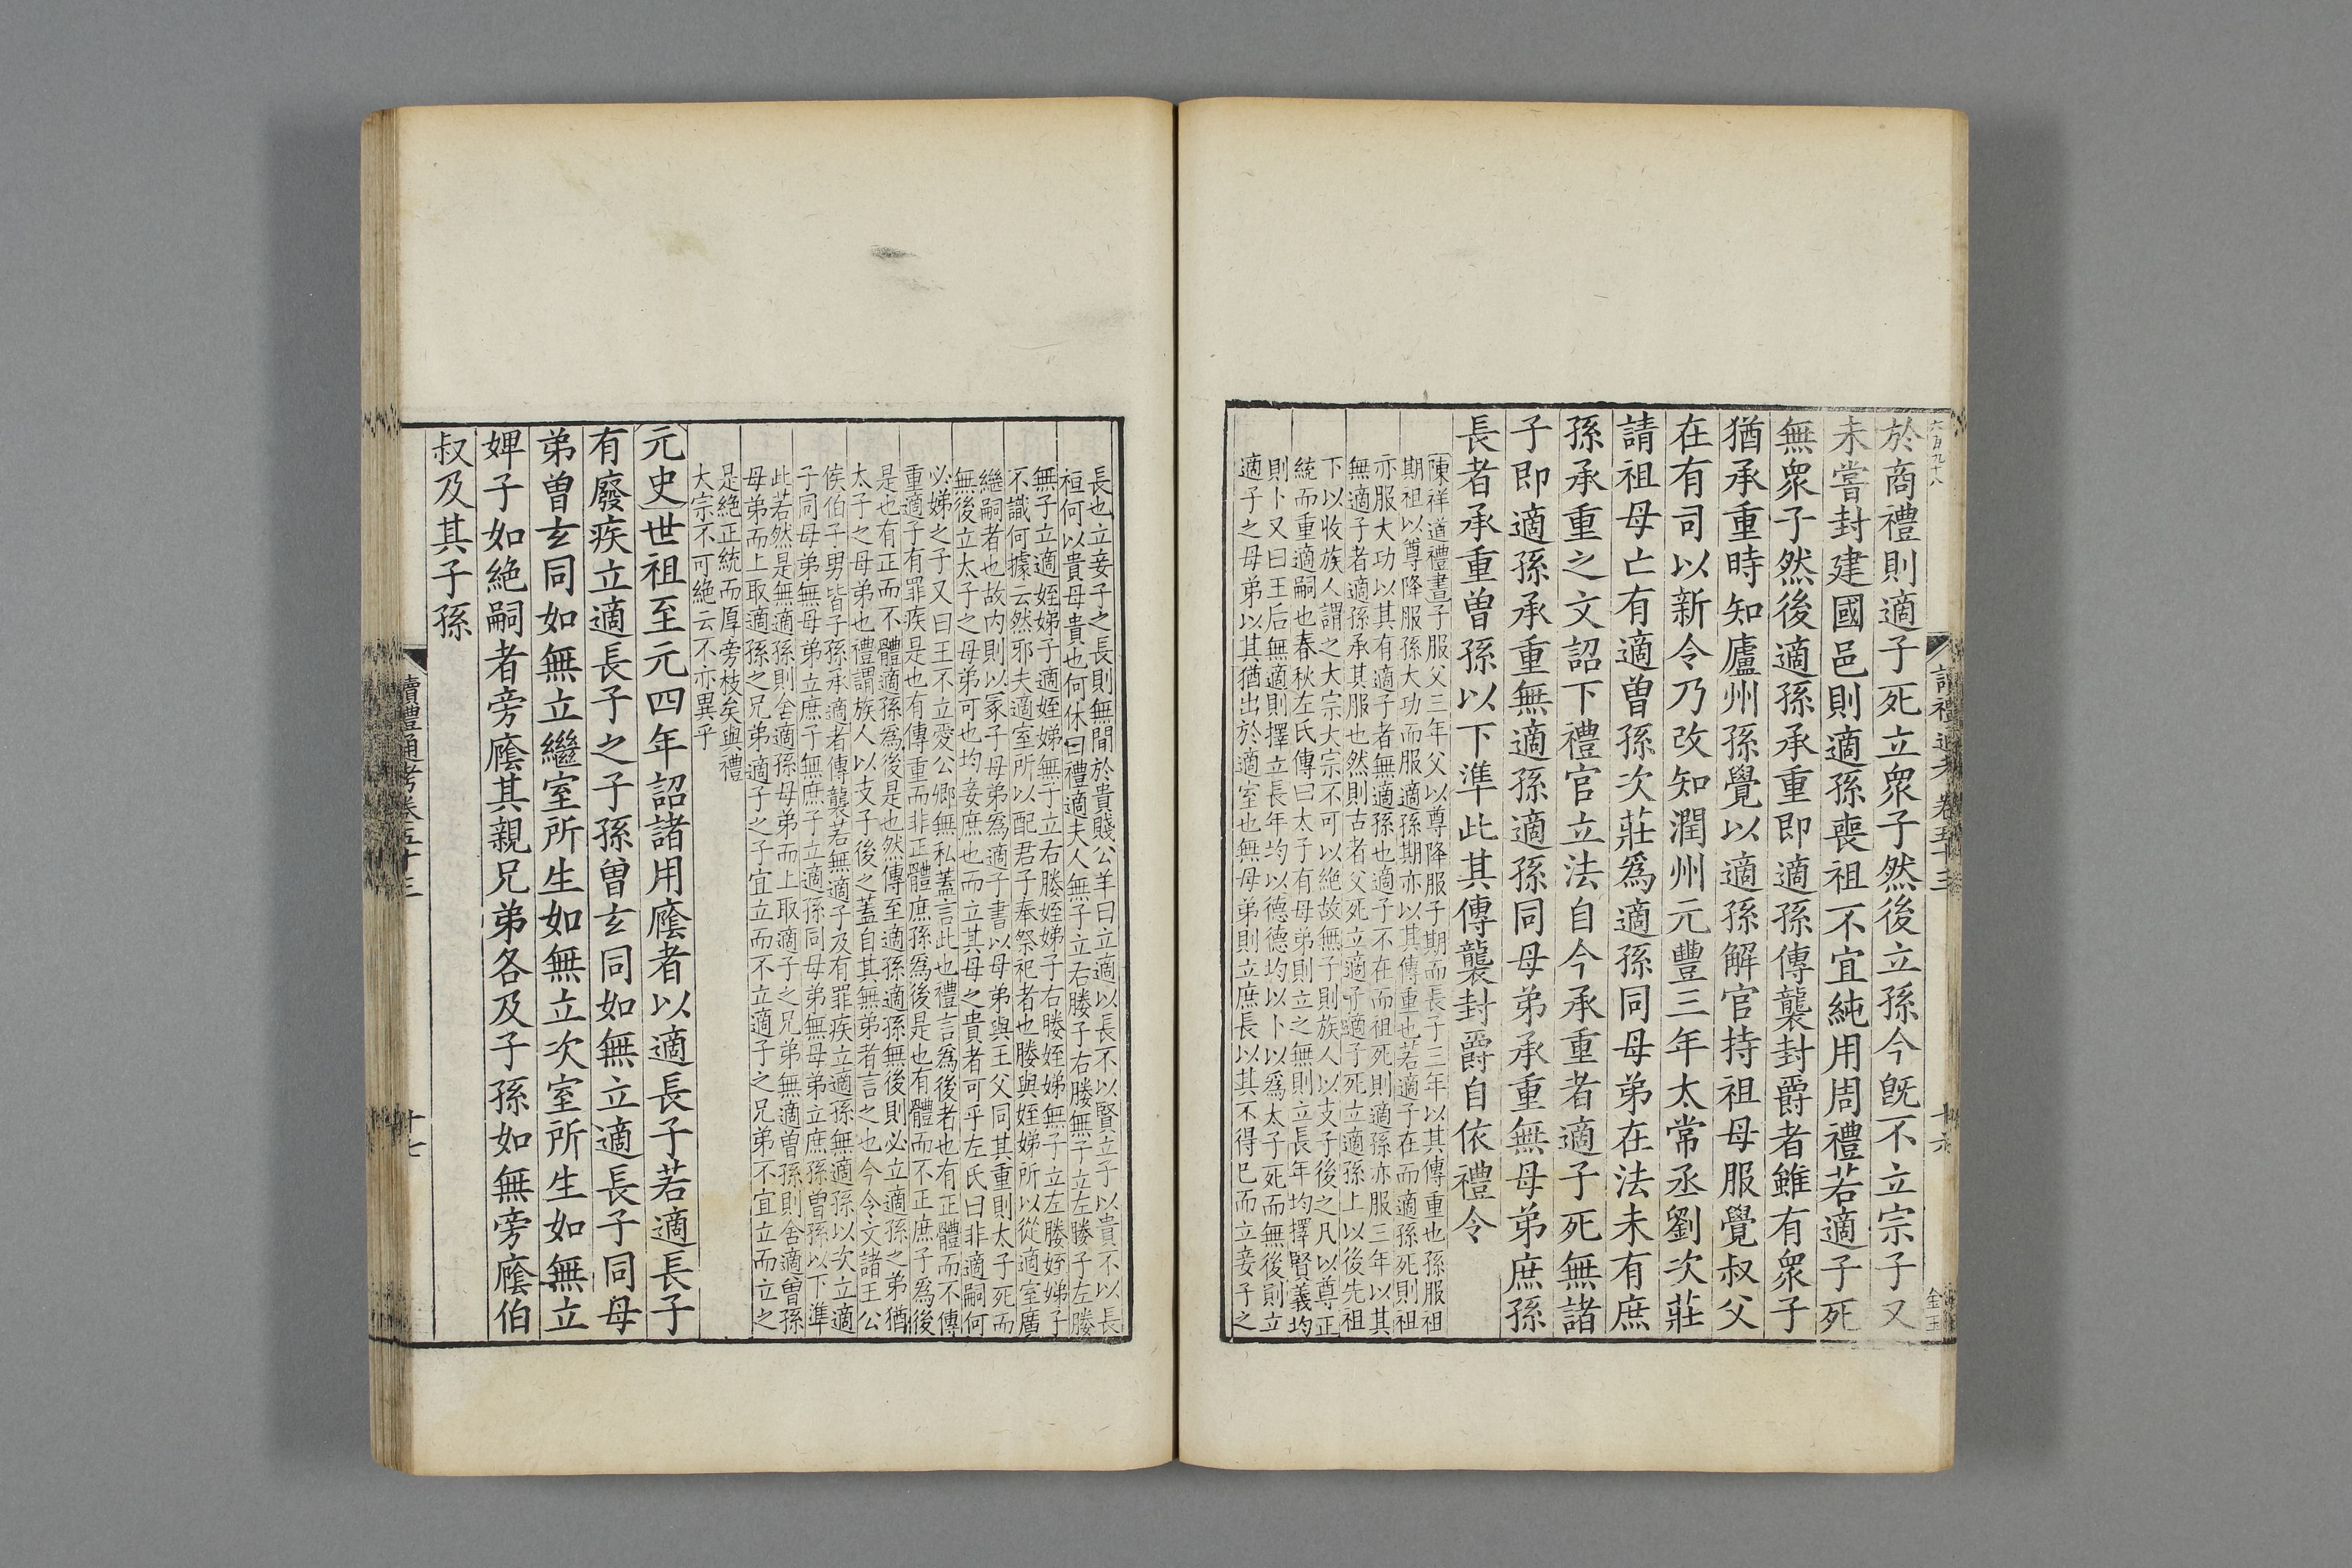 六百九十八
讀禮通考卷五十三
於商禮則適子死立衆子然後立孫今旣不立宗子又
未嘗封建國邑則適孫喪祖不宜純用周禮若適子死
無衆子然後適孫承重即適孫傳襲封爵者雖有衆子
猶承重時知廬州孫覺以適孫解官持祖母服覺叔父
在有司以新令乃改知潤州元豐三年太常丞劉次莊
請祖母亡有適曾孫次莊爲適孫同母弟在法未有庶
孫承重之文詔下禮官立法自今承重者適子死無諸
子即適孫承重無適孫適孫同母弟承重無母弟庶孫
長者承重曾孫以下準此其傳襲封爵自依禮令
陳祥道禮書子服父三年父以尊降服子期而長子三年以其傳重也孫服祖
期祖以尊降服孫大功而服適孫期亦以其傳重也若適子在而適孫死則祖
亦服大功以其有適子者無適孫也適子不在而祖死則適孫亦服三年以其
無適子者適孫承其服也然則古者父死立適子適子死立適孫上以後先祖
下以收族人謂之大宗大宗不可以絶故無子則族人以支子後之凡以尊正
統而重適嗣也春秋左氏傳曰太子有母弟則立之無則立長年均擇賢義均
則卜又曰王后無適則擇立長年均以德德均以卜以爲太子死而無後則立
適子之母弟以其猶出於適室也無母弟則立庶長以其不得已而立妾子之
長也立妾子之長則無間於貴賤公羊曰立適以長不以賢立子以貴不以長
桓何以貴母貴也何休曰禮適夫人無子立右媵子右媵無子立左媵子左媵
無子立適姪娣子適姪娣無子立右媵姪娣子右媵姪娣無子立左媵姪娣子
不識何據云然邪夫適室所以配君子奉祭祀者也媵與姪娣所以從適室廣
繼嗣者也故内則以冢子母弟爲適子書以母弟與王父同其重則太子死而
無後立太子之母弟可也均妾庶也而立其母之貴者可乎左氏曰非適嗣何
必娣之子又曰王不立愛公卿無私蓋言此也禮言爲後者也有正體而不傳
重適子有罪疾是也有傳重而非正體庶孫爲後是也有體而不正庶子爲後
是也有正而不體適孫爲後是也然傳至適孫適孫無後則必立適孫之弟猶
太子之母弟也禮謂族人以支子後之蓋自其無弟者言之也今令文諸王公
侯伯子男皆子孫承適者傳襲若無適子及有罪疾立適孫無適孫以次立適
子同母弟無母弟立庶子無庶子立適孫同母弟無母弟立庶孫曾孫以下準
此若然是無適孫則舍適孫母弟而上取適子之兄弟無適曾孫則舍適曾孫
母弟而上取適孫之兄弟適子之子宜立而不立適子之兄弟不宜立而立之
是絶正統而厚旁枝矣與禮
大宗不可絶云不亦異乎
元史世祖至元四年詔諸用廕者以適長子若適長子
有廢疾立適長子之子孫曾玄同如無立適長子同母
弟曾玄同如無立繼室所生如無立次室所生如無立
婢子如絶嗣者旁廕其親兄弟各及子孫如無旁廕伯
叔及其子孫
讀禮通考卷五十三
十七